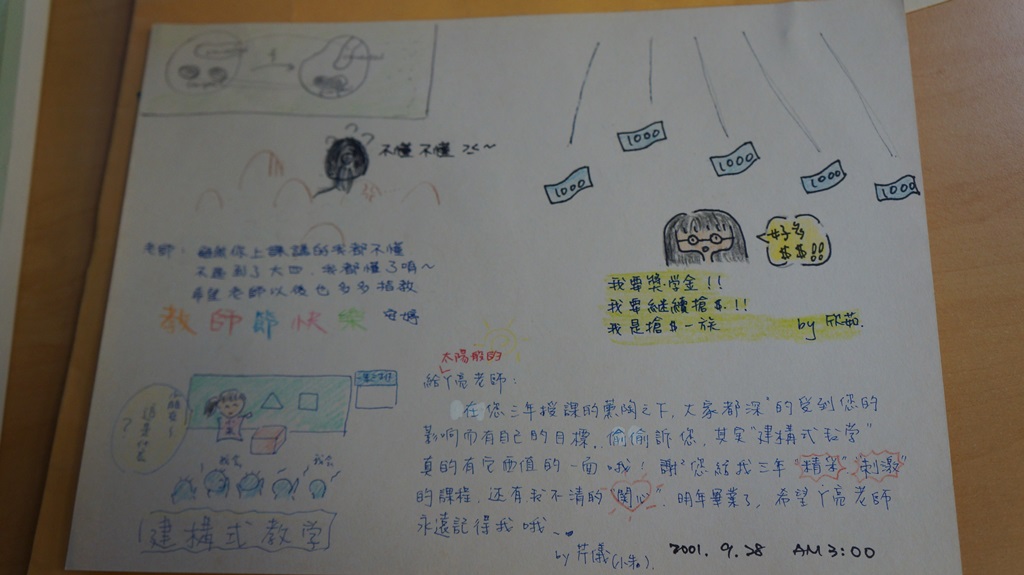 不懂 不懂 ㄋㄟ~
1000
1000
1000
1000
1000
好多
$$!!
老師: 雖然你上課講的我都不懂
不過到了大四, 我都懂了唷~
希望老師以後也多多指教
教師節快樂
我要獎學金!!
我要繼續搶$!!
我是搶$一族 by 欣茹.
太陽般的
給ㄚ亮老師:
在您三年授課的薰陶之下, 大家都深"的受到您的
影响而有自己的目標. 偷偷訴您, 其实"建構式教学"
真的有它価值的一面哦! 謝"您給我三年"精彩""刺激"
的課程, 還有我不清的"関心". 明年畢業了, 希望ㄚ亮老師
永遠記得我哦..
by 芹儀
2001. 9. 28 AM 3:00
這是什么
?
我会
我会
建構式教学